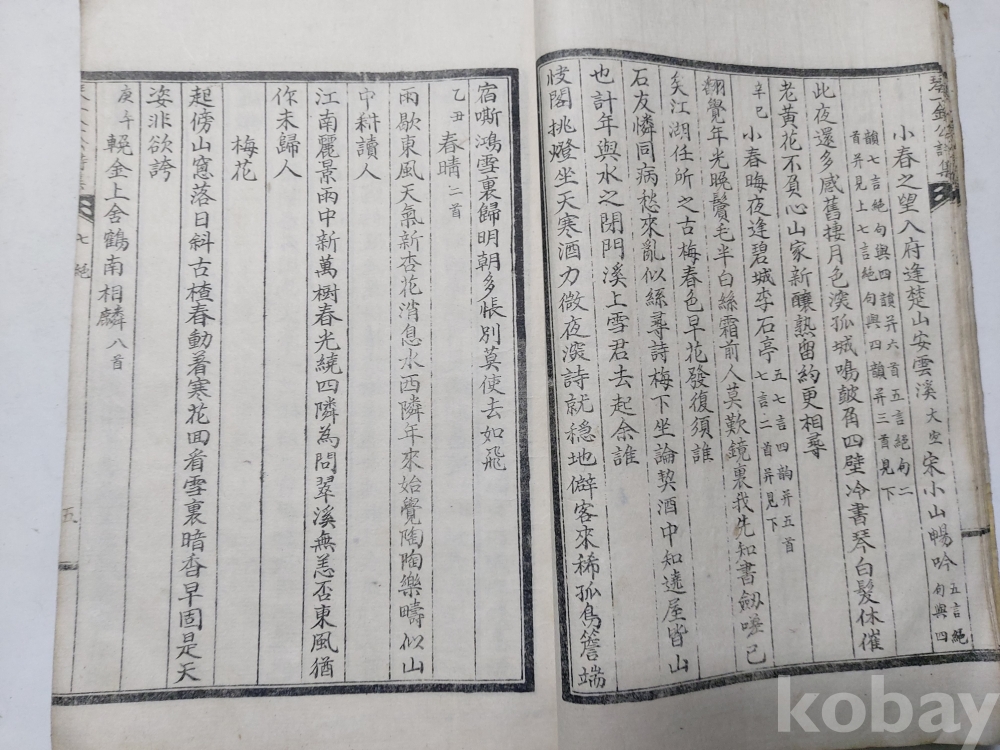 小春之望入府逢楚山安雲溪大空宋小山暢吟五言絕句與四
韻七言絕句與四韻并六首五言絕句二
首并見上七言絕句與四韻并三首見下
此夜還多感舊樓月色深孤城鳴皷角四壁冷書琴白髮休催
老黃花不負心山家新釀熟留約更相尋
辛巳小春晦夜逢碧城李石亭五七言四韵并五首七言二首并見下
翻覺年光晚鬢毛半白絲霜前人莫歎鏡裏我先知書劒嗟已
矣江湖任所之古梅春色早花發復須誰
石友憐同病愁來亂似絲尋詩梅下坐論契酒中知遶屋皆山
也計年與水之閉門溪上雪君去起余誰
閣挑燈坐天寒酒力微夜深詩就穩地僻客來稀孤鳥簷端
宿嘶鴻雪裏歸明朝多悵別莫使去如飛
乙丑春晴二首
雨歇東風天氣新杏花消息水西隣年來始覺陶陶樂疇似山
中耕讀人
江南麗景雨中新萬樹春光繞四隣為問翠溪無恙否東風猶
作未歸人
梅花
起傍山窓落日斜古楂春動着寒花回看雪裏暗香早固是天
姿非欲誇
庚午輓金上舍鶴南相麟八首
七絕
五
kobay